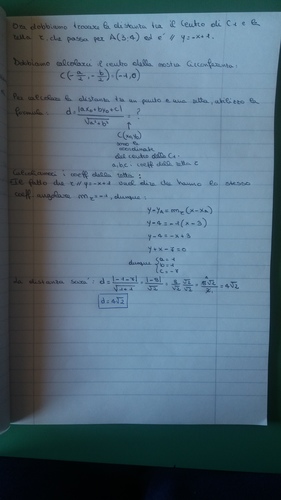 Ora dobbiamo trovare la distanza tra il centro di C1 e la
retta r, che passa per A(3;4) ed e' // y=-x+1.
Dobbiamo calcolare il centro della nostra circonferenza:
C(-a/2, -b/2) = (-1,0)
Per calcolare la distanza tra un punto e una retta, utilizzo la
formula: d = |ax0+by0+c| / √a²+b² = ?
C(x0,y0)
sono le
coordinate
del centro della C1.
a,b,c = coeff della retta r
Calcoliamo i coeff della retta:
Il fatto che r // y=-x+1 vuol dire che hanno lo stesso
coeff. angolare mr=-1, dunque:
y-yA=mr(x-xA)
y-4=-1(x-3)
y-4=-x+3
y+x-7=0
dunque { a=1
b=1
c=-7
la distanza sara': d = |-1-7| / √1+1 = |-8| / √2 = 8/√2 √2/√2 = 8√2/2 = 4√2
d=4√2